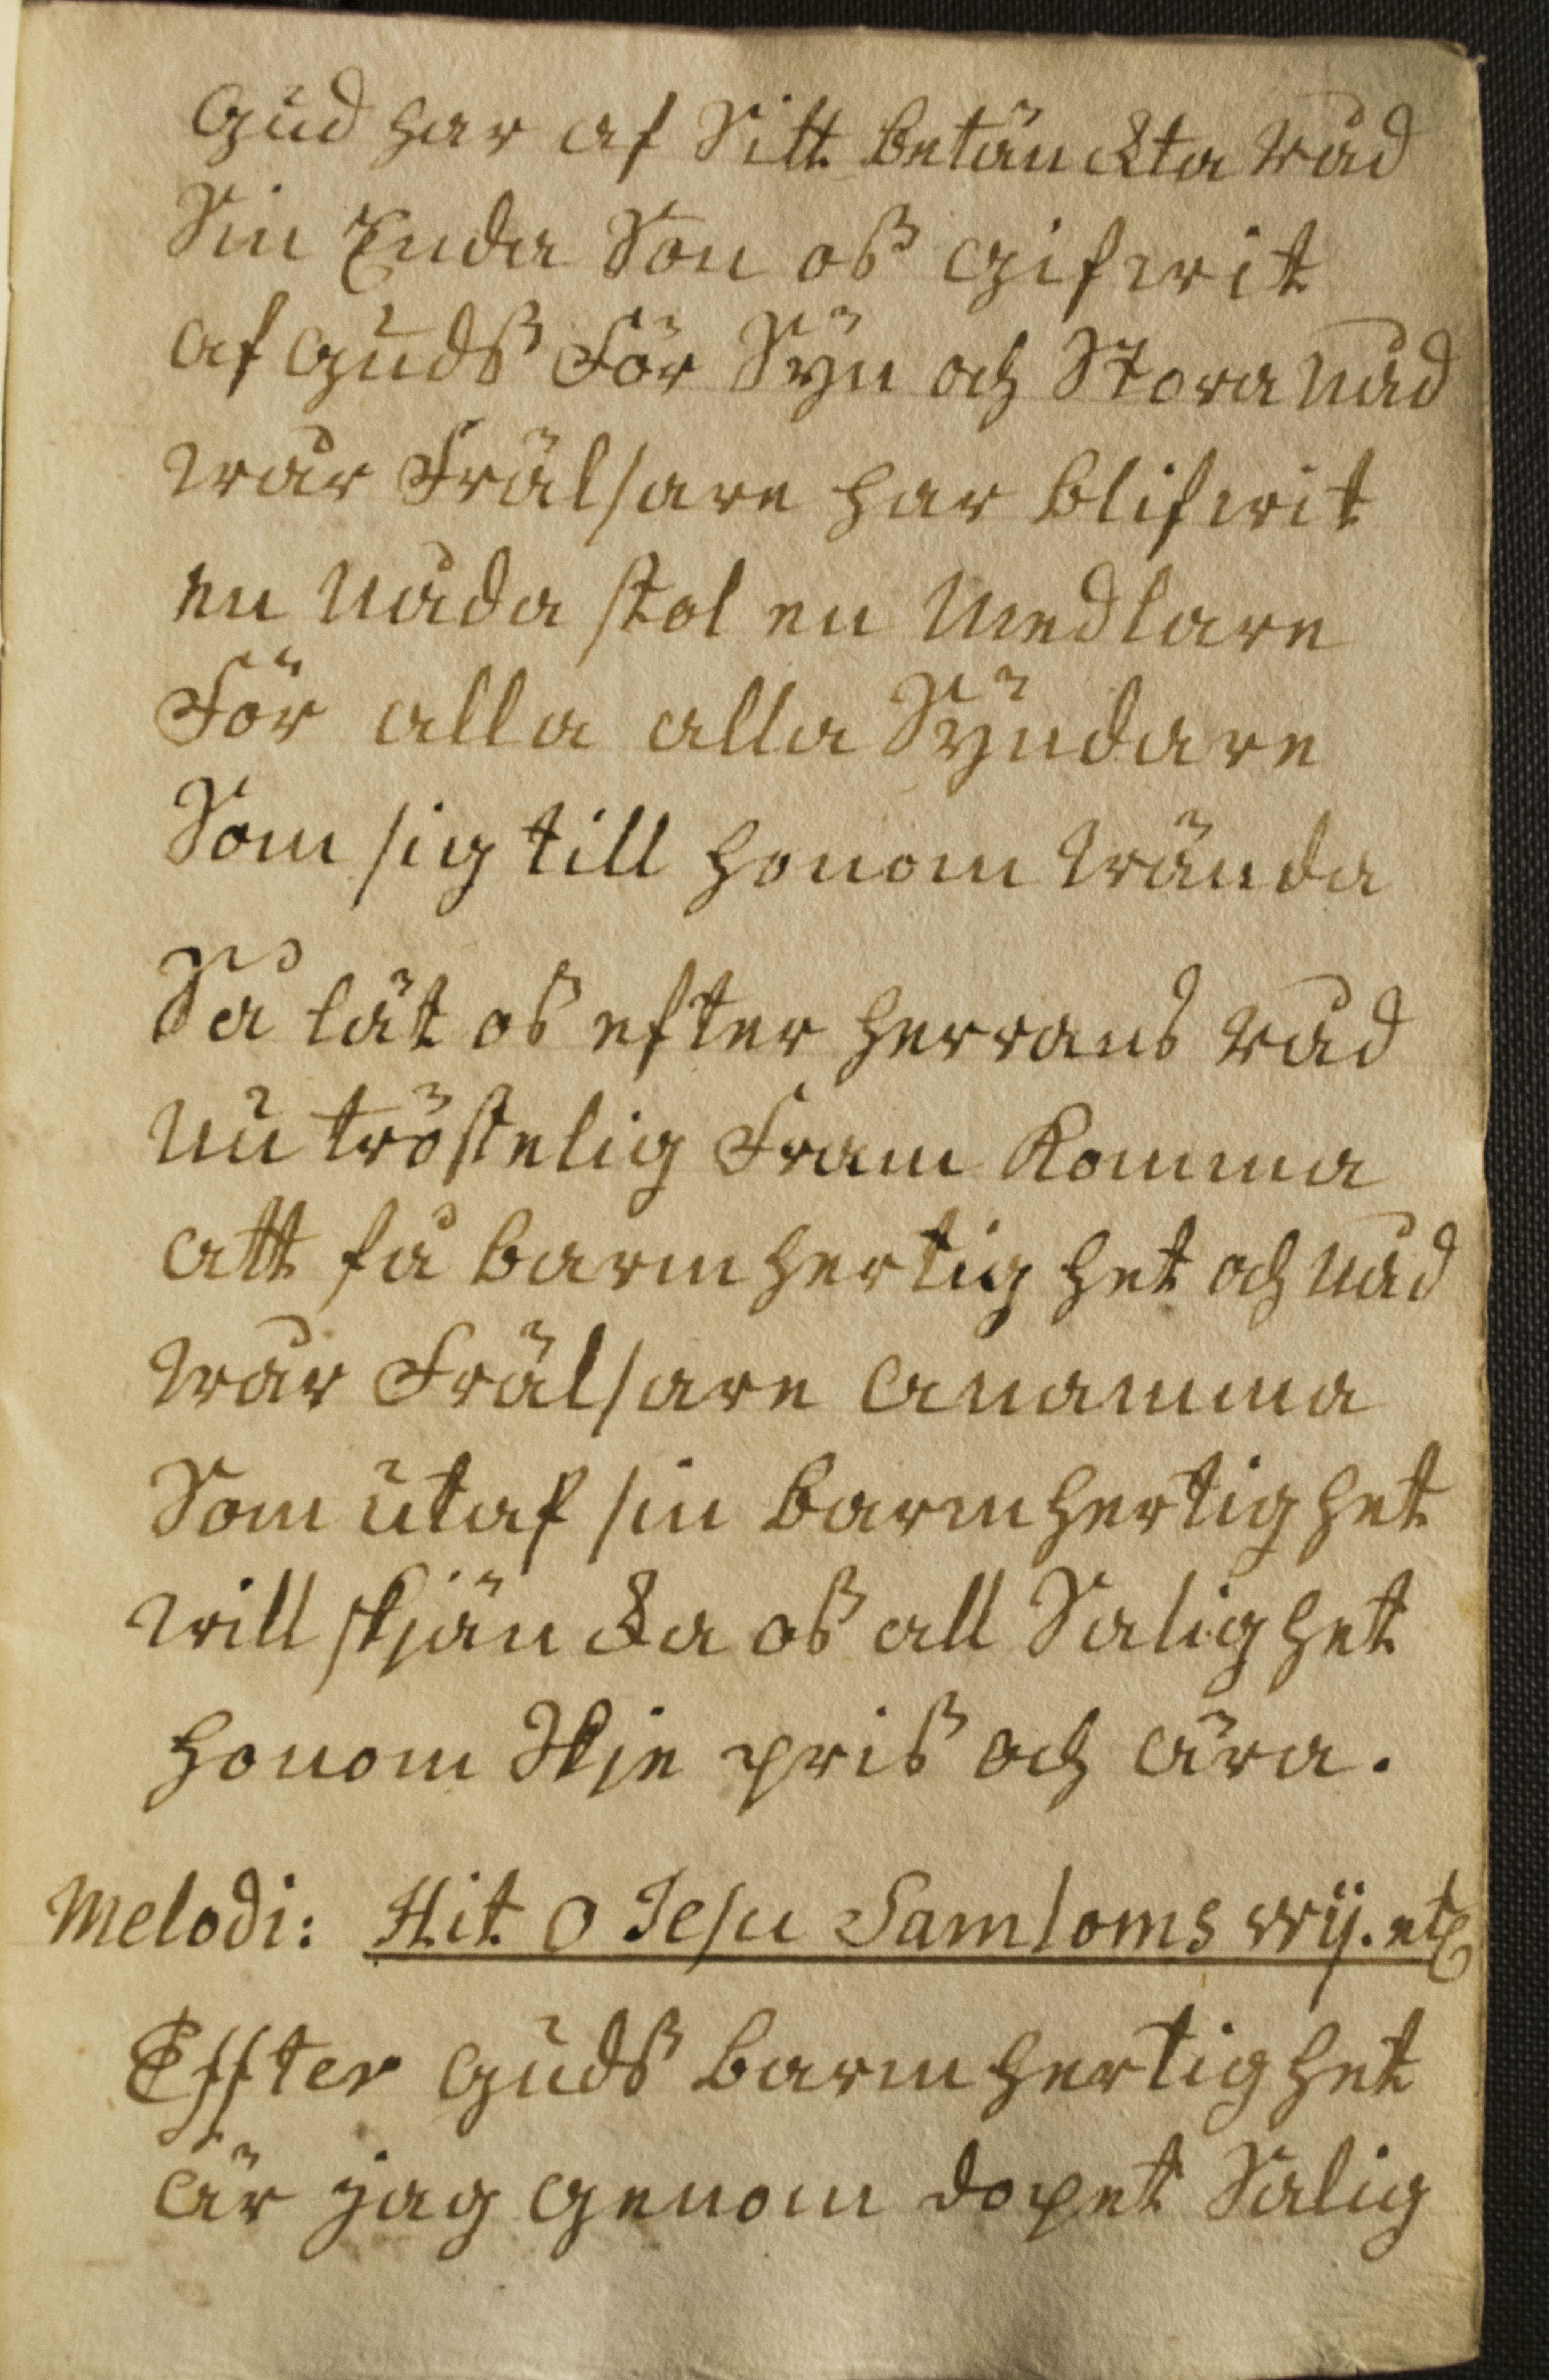 Gud har af Sitt betänckta råd
Sin Enda Son oß gifwit
af Guds För Syn och Stora nåd
wår Frälsare har blifwit
en nåda stol en Medlare
För alla alla Syndare
Som sig till honom wända
Så låt oß efter herrans råd
nu tröstelig Fram komma
att få barmhertighet och nåd
wår Frälsare anamma
Som utaf sin barmhertighet
will skjäncka oß all Salighet
honom Skje pris och ära.
Melodi: Hit O Jesu Samloms wij. etc
Effter Guds barmhertighet
är jag genom dopet Salig